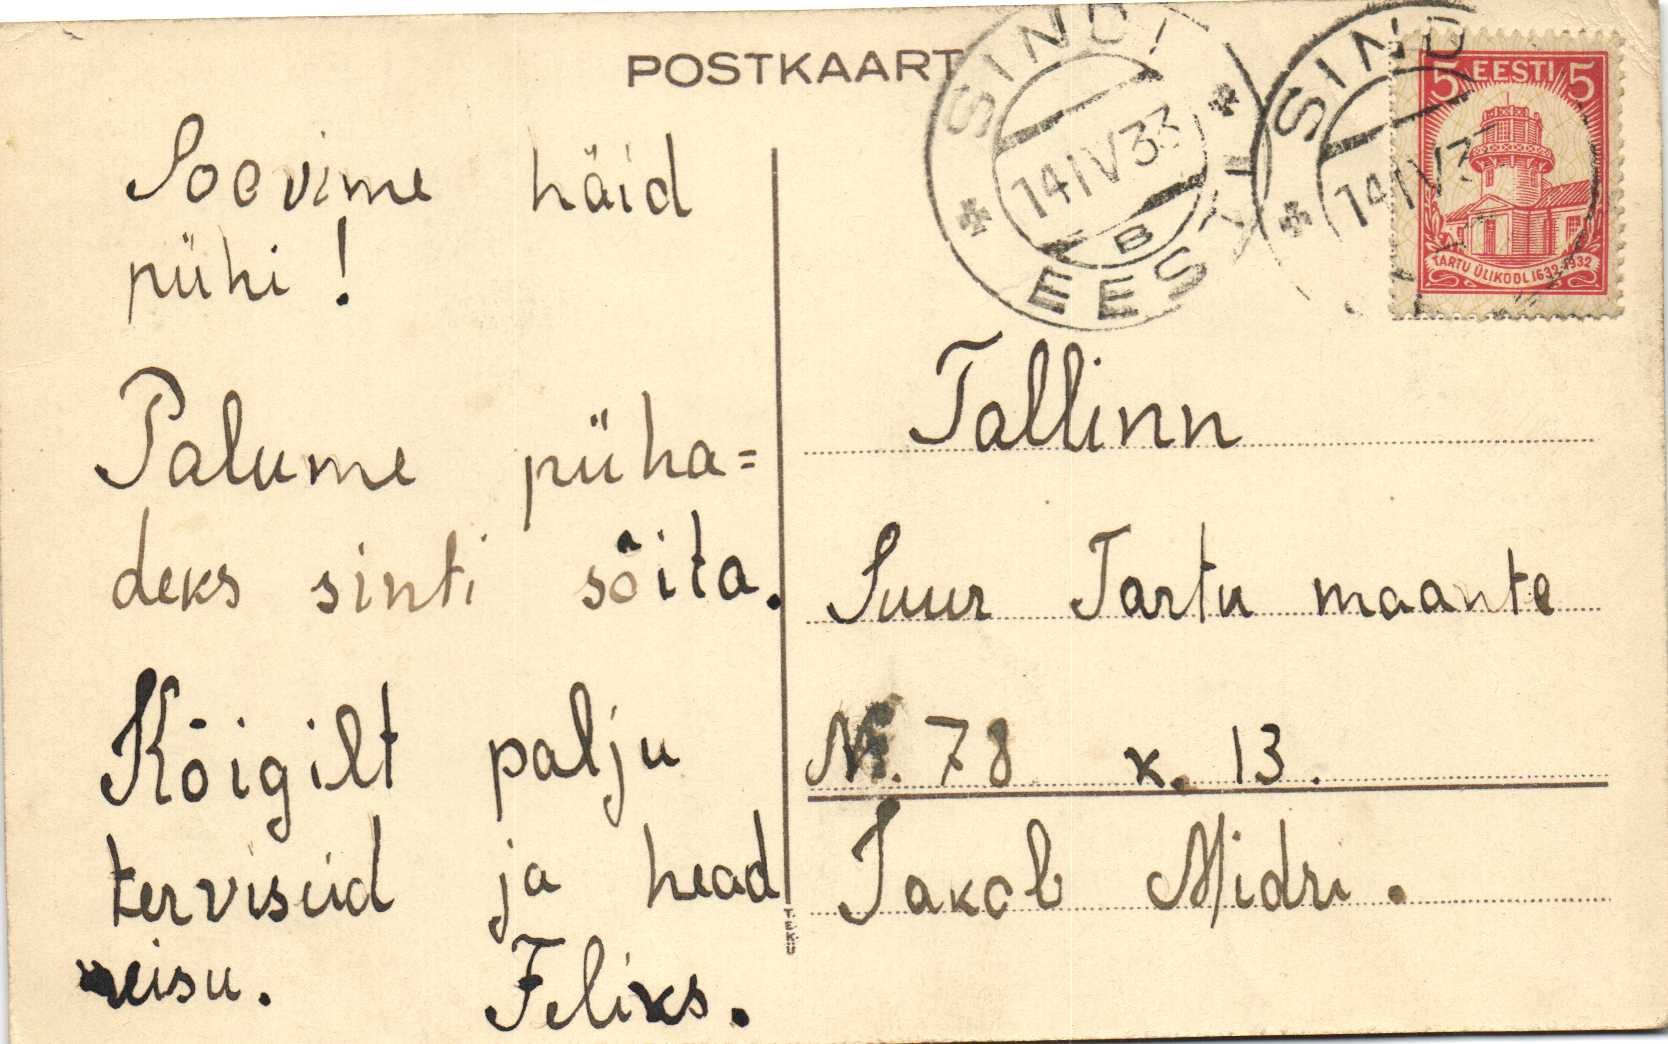 POSTKAART
SINDI
14 IV 33
B
EESTI
SINDI
14 IV 33
5 EESTI 5
TARTU ÜLIKOOL 1632-1932
Soovime häid
pühi!
Palume püha=
deks sinti sõita.
Kõigilt palju
tervisiid ja head
reisu. Feliks.
Tallinn
Suur Tartu maante
Nr. 78 k. 13.
Jakob Midri.
T.E.K.Ü